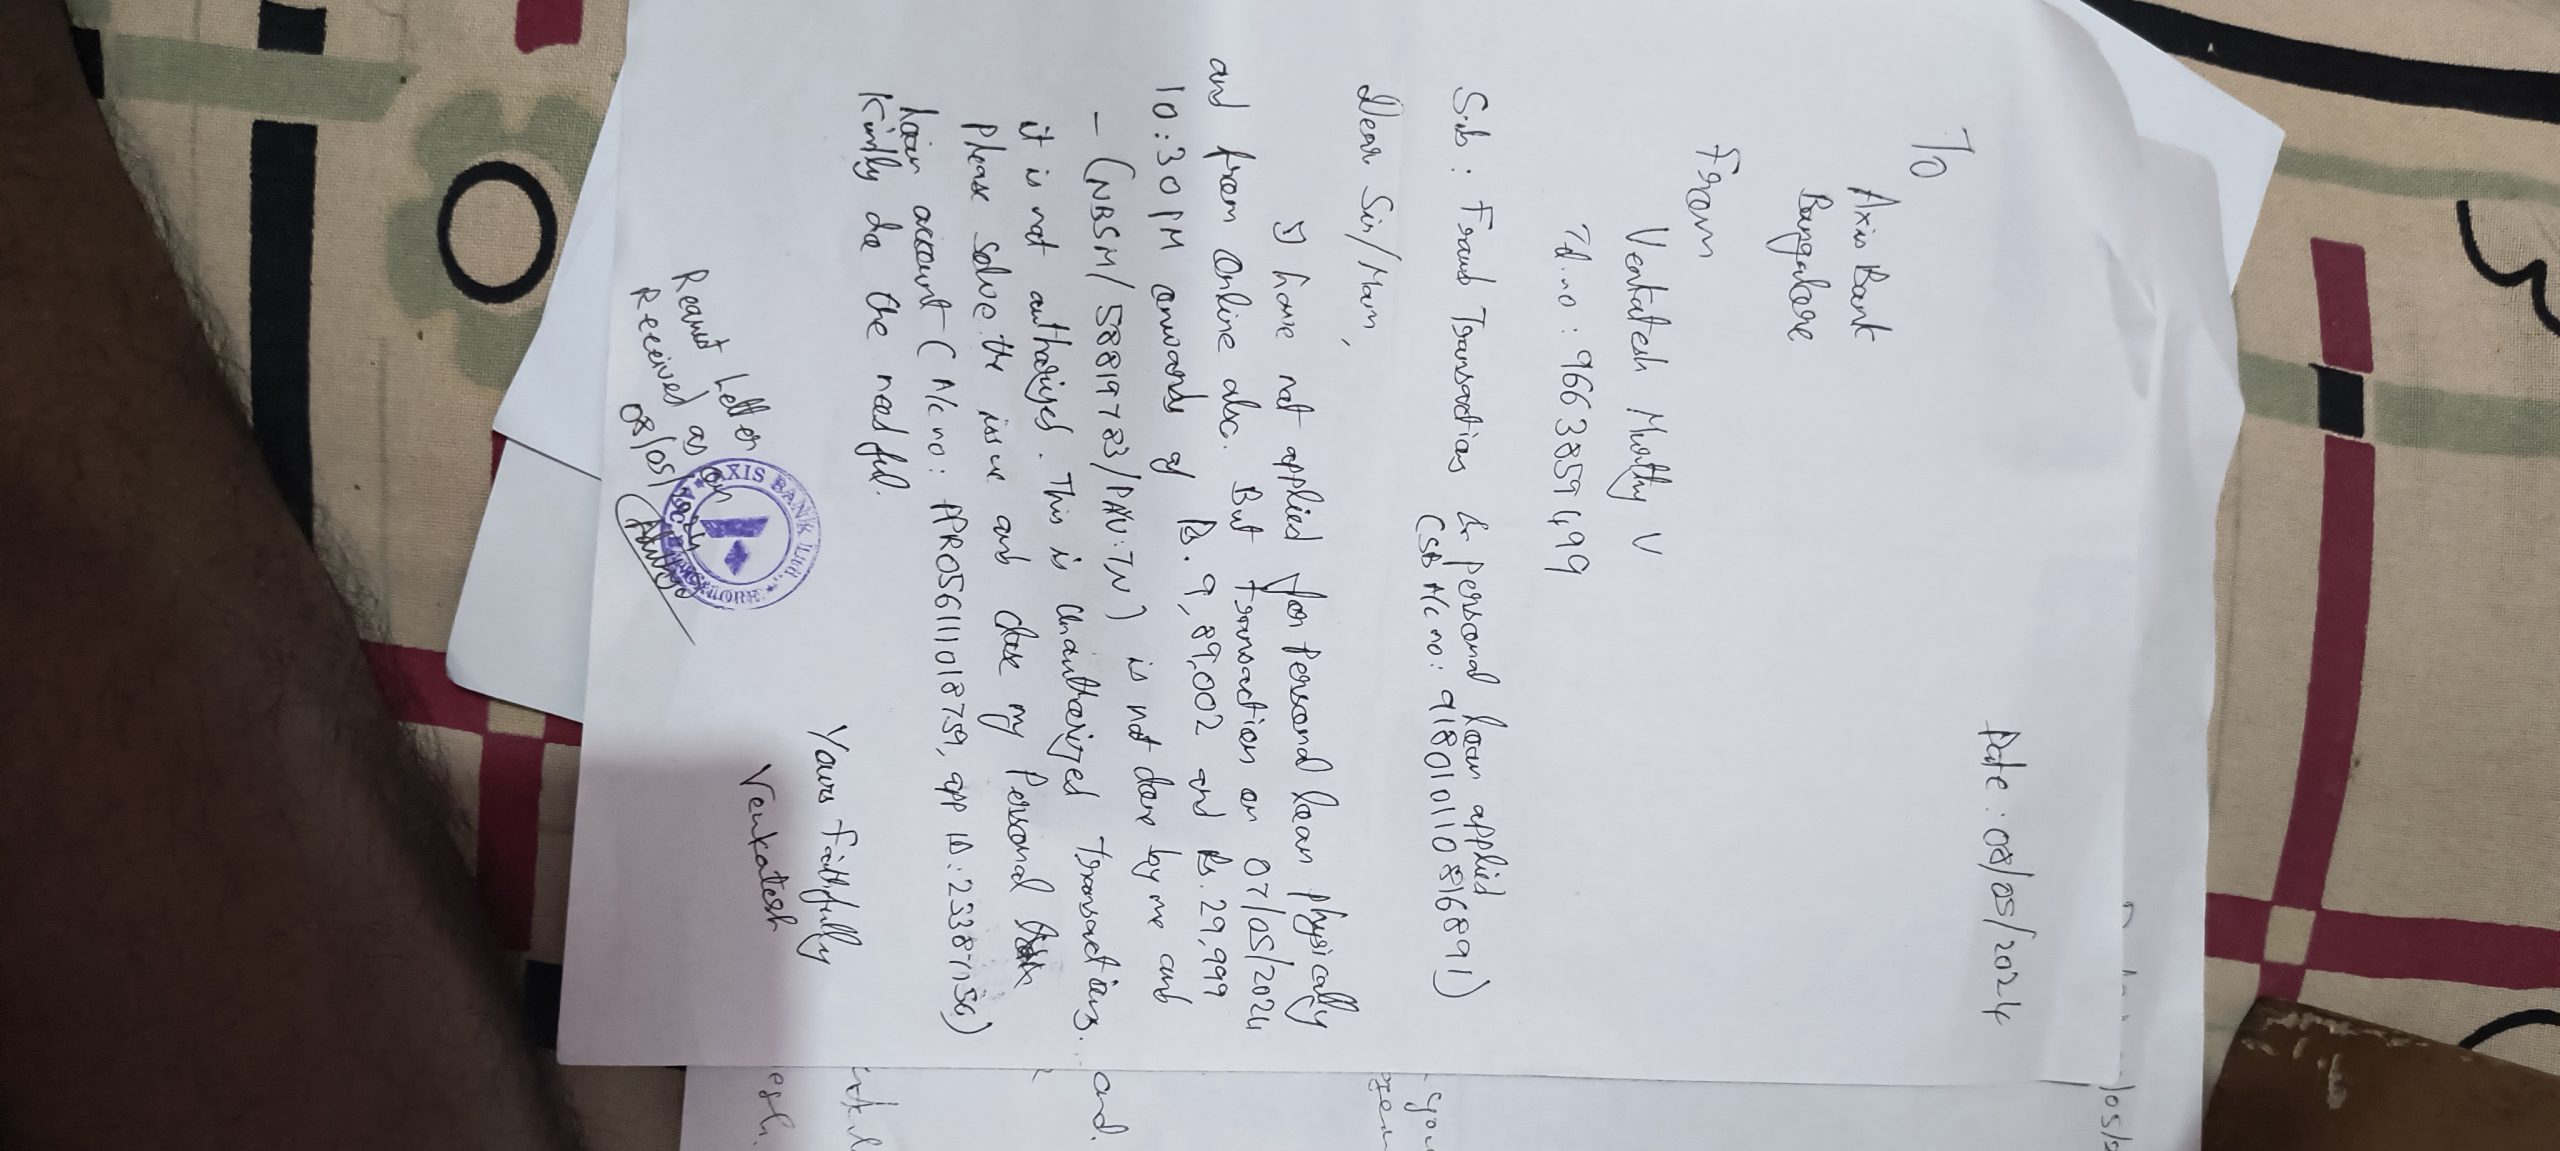 Date : 08/05/2024
To
Axis Bank
Bangalore
From
Venkatesh Murthy V
Td.no : 9663859499
Sub : Fraud Transaction & personal loan applied
(SB A/c no: 918010110816891)
Dear Sir/Mam,
I have not applied for Personal loan physically
and from Online also. But transaction on 07/05/2024
10:30 PM onwards of Rs. 9,89,002 and Rs. 29,999
- (NBSM/58819783/PAU:TN) is not done by me and
it is not authorized. This is Unauthorized Transactions. and.
please solve the issue and close my Personal
loan account (A/c no: PPR056111018759, app ID: 23387156)
Kindly do the needful.
Yours Faithfully
Venkatesh
Request Letter
Received as on
08/05/2024
AXIS BANK Ltd.